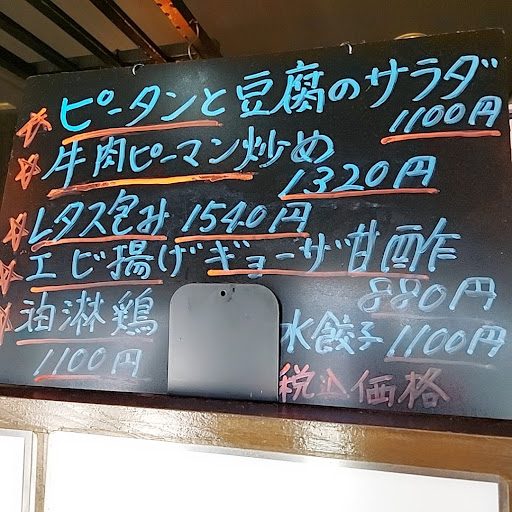 ☆ピータンと豆腐のサラダ
1100円
☆牛肉ピーマン炒め
1320円
☆レタス包み 1540円
☆エビ揚げギョーザ甘酢
880円
☆油淋鶏 水餃子 1100円
1100円
税込価格